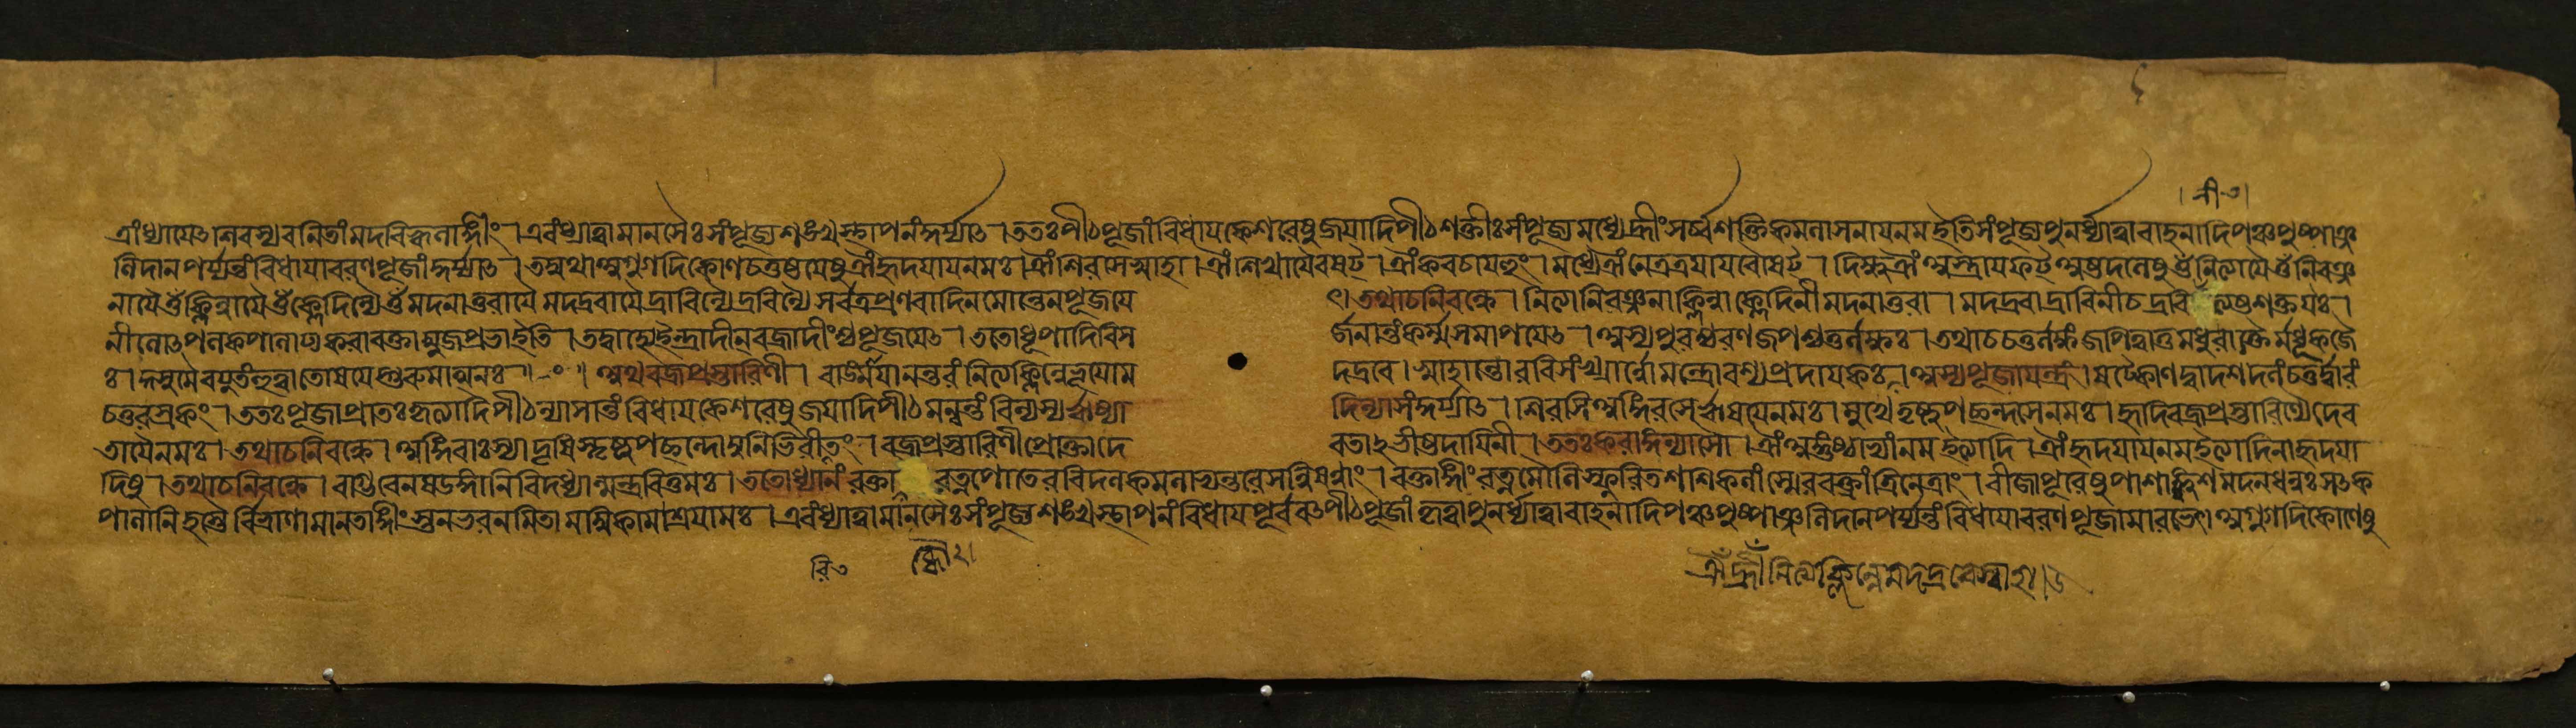 ত্রাং ধ্যায়েৎ নবস্যবনিতাং মদবিহ্বলাঙ্গীং । এবং ধ্যাত্বা মানসৈঃ সংপূজ্য শঙ্খস্থাপনং কুর্য্যাৎ । ততঃ পীঠপূজাং বিধায় কেশরেষু জয়াদিপীঠশক্তীঃ সংপূজ্য মধ্যে হ্রীং সর্ব্বশক্তিকমলাসনায় নম ইতি সংপূজ্য পুনর্ধ্যাত্বাবাহনাদিপঞ্চপুষ্পাঞ্জ
লিদানপর্য্যন্তং বিধায়াবরণপূজাং কুর্য্যাৎ । তদ্যথা অগ্ন্যাদিকোণচতুষ্টয়েষু ঐং হৃদয়ায় নমঃ । ঐং শিরসে স্বাহা । ঐং শিখায়ৈ বষট্ । ঐং কবচায় হুং । মধ্যে ঐং নেত্রত্রয়ায় বৌষট্ । দিক্ষু ঐং অস্ত্রায় ফট্ অষ্টদলেষু ওঁ নিত্যায়ৈ ওঁ নিরঞ্জ
নায়ৈ ওঁ ক্লিন্নায়ৈ ওঁ ক্লেদিন্যৈ ওঁ মদনাতুরায়ৈ মদদ্রবায়ৈ দ্রাবিণ্যৈ দ্রবিণ্যৈ সর্বত্র প্রণবাদিনমোন্তেন পূজয়ে ৎ। তথাচ নিবন্ধে । নিত্যা নিরঞ্জনা ক্লিন্না ক্লেদিনী মদনাতুরা । মদদ্রবা দ্রাবিণী চ দ্রবি ত্যষ্টশক্তয়ঃ ।
নীলোৎপলকপালাঢ্যকরা রক্তাম্বুজপ্রভা ইতি । তদ্বাহ্যে ইন্দ্রাদীন্ বজ্রাদীংশ্চ পূজয়েৎ । ততো ধূপাদিবিস র্জনান্তং কর্ম্ম সমাপয়েৎ । অস্য পুরশ্চরণজপশ্চতুর্লক্ষঃ । তথাচ চতুর্লক্ষং জপিত্বা তু মধুরাক্তৈর্মধূকজৈ
ঃ । কুসুমৈরযুতং হুত্বা তোষয়েদ্গুরুমাত্মনঃ ॥ ০ ॥ অথ বজ্রপ্রস্তারিণী । বাঙ্মায়ানন্তরং নিত্যক্লিন্নেভূয়োম দদ্রবে । স্বাহান্তো রবিসংখ্যার্ণো মন্ত্রো বশ্যপ্রদায়কঃ । অস্য পূজাযন্ত্রং । ষট্কোণদ্বাদশদলং চতুর্দ্বারং
চতুরস্রকং । ততঃ পূজা প্রাতঃকৃত্যাদিপীঠন্যাসান্তং বিধায় কেশরেষু জয়াদিপীঠমন্বন্তং বিন্যস্য ঋষ্যা দিন্যাসং কুর্য্যাৎ । শিরসি অঙ্গিরসে ঋষয়ে নমঃ । মুখে তৃষ্টুপছন্দসে নমঃ । হৃদি বজ্রপ্রস্তারিণ্যৈ দেব
তায়ৈ নমঃ । তথাচ নিবন্ধে । অঙ্গিরাঃ স্যাদৃষিস্তৃষ্টুপছন্দো মুনিভিরীরিতং । বজ্রপ্রস্তারিণী প্রোক্তা দে বতাহভীষ্টদায়িনী । ততঃ করাঙ্গন্যাসৌ । ঐং অঙ্গুষ্ঠাভ্যাং নম ইত্যাদি । ঐং হৃদয়ায় নম ইত্যাদিনা হৃদয়া
দিষু । তথাচ নিবন্ধে । বাগ্ভবেন ষডঙ্গানি বিদধ্যান্মন্ত্রবিত্তমঃ । ততো ধ্যানং রক্তা রত্নপোতে রবিদলকমলাভ্যন্তরে সন্নিষণ্ণাং । রক্তাঙ্গীং রত্নমৌলিস্ফুরিতশশিকলাং স্মেরবক্ত্রাং ত্রিনেত্রাং । বীজাপূরেষুপাশাঙ্কুশমদনধনুঃসৎক
পালানি হস্তৈ র্বিভ্রাণামানতাঙ্গীং স্তনভরনমিতামম্বিকামাশ্রয়ামঃ । এবং ধ্যাত্বা মানসৈঃ সংপূজ্য শঙ্খস্থাপনং বিধায় পূর্ববৎ পীঠপূজাং কৃত্বা পুনর্ধ্যাত্বাবাহনাদিপঞ্চপুষ্পাঞ্জলিদানপর্য্যন্তং বিধায়াবরণপূজামারভেৎ। অগ্ন্যাদিকোণেষু
ঐঁ হ্রীঁ নিত্যক্লিন্নে মদদ্রবে স্বাহা।